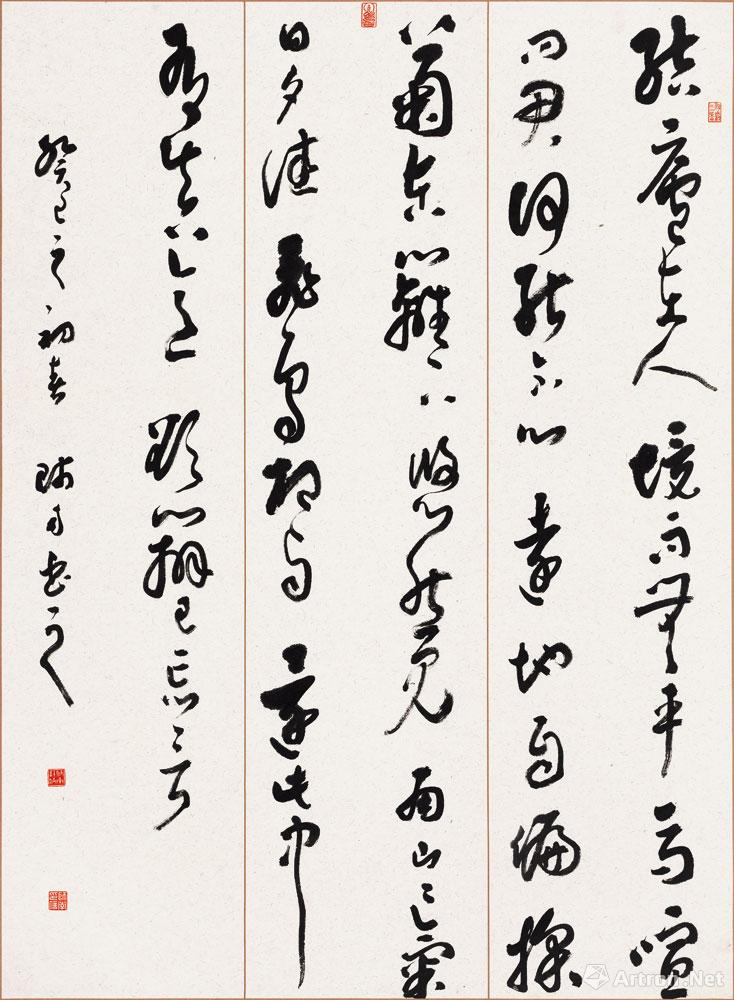 結廬在人境而無車馬喧
問君何能尔心遠地自偏採
菊東籬下悠然見南山々氣
日夕佳飛鳥相與還此中
有真意欲辨已忘言
癸巳之初春
Artron.Net